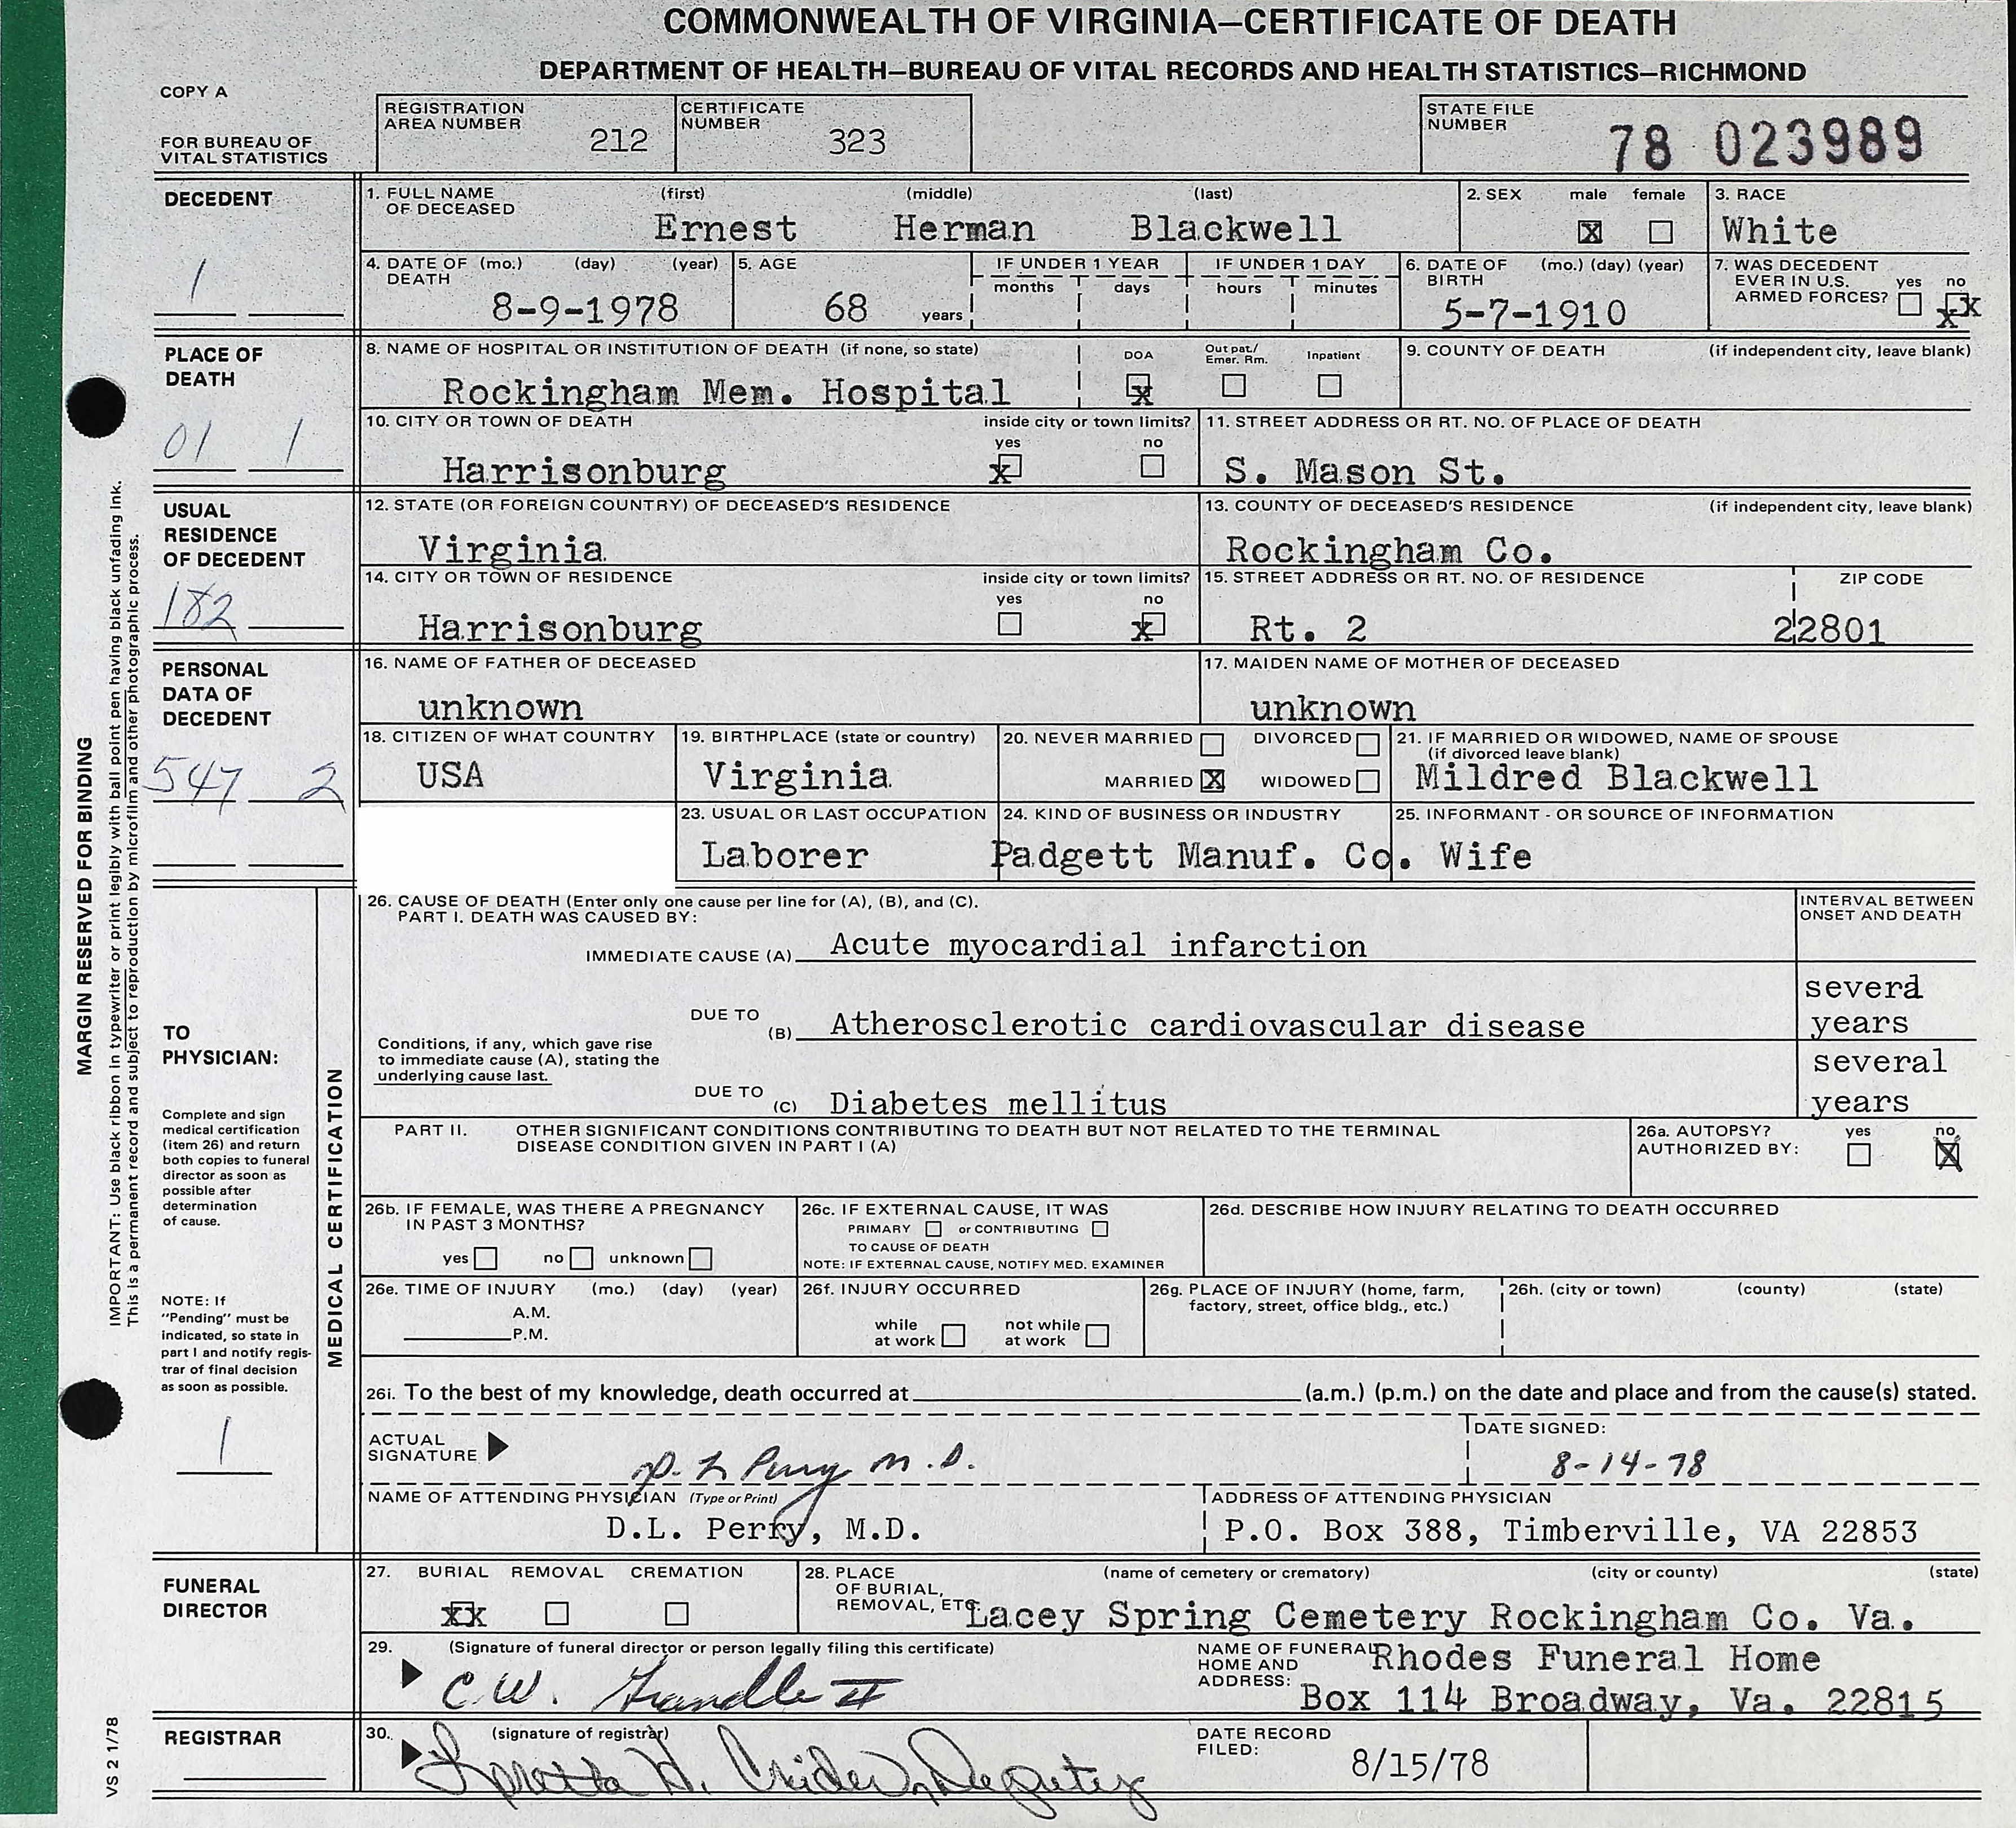 COMMONWEALTH OF VIRGINIA—CERTIFICATE OF DEATH
DEPARTMENT OF HEALTH—BUREAU OF VITAL RECORDS AND HEALTH STATISTICS—RICHMOND
COPY A
FOR BUREAU OF
VITAL STATISTICS
REGISTRATION
AREA NUMBER 212
CERTIFICATE
NUMBER 323
STATE FILE
NUMBER 78 023989
DECEDENT
1
1. FULL NAME (first) (middle) (last)
OF DECEASED
Ernest Herman Blackwell
2. SEX male female
X
3. RACE
White
4. DATE OF (mo.) (day) (year)
DEATH
8-9-1978
5. AGE
68 years
IF UNDER 1 YEAR
months days
IF UNDER 1 DAY
hours minutes
6. DATE OF (mo.) (day) (year)
BIRTH
5-7-1910
7. WAS DECEDENT
EVER IN U.S. yes no
ARMED FORCES? X X
PLACE OF
DEATH
01 1
8. NAME OF HOSPITAL OR INSTITUTION OF DEATH (if none, so state)
Rockingham Mem. Hospital
DOA Out pat./ Emer. Rm. Inpatient
x
9. COUNTY OF DEATH (if independent city, leave blank)
10. CITY OR TOWN OF DEATH inside city or town limits?
yes no
Harrisonburg x
11. STREET ADDRESS OR RT. NO. OF PLACE OF DEATH
S. Mason St.
USUAL
RESIDENCE
OF DECEDENT
182
12. STATE (OR FOREIGN COUNTRY) OF DECEASED'S RESIDENCE
Virginia
13. COUNTY OF DECEASED'S RESIDENCE (if independent city, leave blank)
Rockingham Co.
14. CITY OR TOWN OF RESIDENCE inside city or town limits?
yes no
Harrisonburg x
15. STREET ADDRESS OR RT. NO. OF RESIDENCE ZIP CODE
Rt. 2 22801
PERSONAL
DATA OF
DECEDENT
547 2
16. NAME OF FATHER OF DECEASED
unknown
17. MAIDEN NAME OF MOTHER OF DECEASED
unknown
18. CITIZEN OF WHAT COUNTRY
USA
19. BIRTHPLACE (state or country)
Virginia
20. NEVER MARRIED DIVORCED
MARRIED X WIDOWED
21. IF MARRIED OR WIDOWED, NAME OF SPOUSE
(if divorced leave blank)
Mildred Blackwell
23. USUAL OR LAST OCCUPATION
Laborer
24. KIND OF BUSINESS OR INDUSTRY
Padgett Manuf. Co.
25. INFORMANT - OR SOURCE OF INFORMATION
Wife
MARGIN RESERVED FOR BINDING
IMPORTANT: Use black ribbon in typewriter or print legibly with ball point pen having black unfading ink.
This is a permanent record and subject to reproduction by microfilm and other photographic process.
TO
PHYSICIAN:
Complete and sign
medical certification
(item 26) and return
both copies to funeral
director as soon as
possible after
determination
of cause.
NOTE: If
"Pending" must be
indicated, so state in
part I and notify regis-
trar of final decision
as soon as possible.
1
MEDICAL CERTIFICATION
26. CAUSE OF DEATH (Enter only one cause per line for (A), (B), and (C).
PART I. DEATH WAS CAUSED BY:
INTERVAL BETWEEN
ONSET AND DEATH
IMMEDIATE CAUSE (A) Acute myocardial infarction
Conditions, if any, which gave rise
to immediate cause (A), stating the
underlying cause last.
DUE TO
(B) Atherosclerotic cardiovascular disease
several
years
DUE TO
(C) Diabetes mellitus
several
years
PART II. OTHER SIGNIFICANT CONDITIONS CONTRIBUTING TO DEATH BUT NOT RELATED TO THE TERMINAL
DISEASE CONDITION GIVEN IN PART I (A)
26a. AUTOPSY? yes no
AUTHORIZED BY: X
26b. IF FEMALE, WAS THERE A PREGNANCY
IN PAST 3 MONTHS?
yes no unknown
26c. IF EXTERNAL CAUSE, IT WAS
PRIMARY or CONTRIBUTING
TO CAUSE OF DEATH
NOTE: IF EXTERNAL CAUSE, NOTIFY MED. EXAMINER
26d. DESCRIBE HOW INJURY RELATING TO DEATH OCCURRED
26e. TIME OF INJURY (mo.) (day) (year)
A.M.
P.M.
26f. INJURY OCCURRED
while
at work
not while
at work
26g. PLACE OF INJURY (home, farm,
factory, street, office bldg., etc.)
26h. (city or town) (county) (state)
26i. To the best of my knowledge, death occurred at (a.m.) (p.m.) on the date and place and from the cause(s) stated.
ACTUAL
SIGNATURE
D. L Perry M.D.
DATE SIGNED:
8-14-78
NAME OF ATTENDING PHYSICIAN (Type or Print)
D.L. Perry, M.D.
ADDRESS OF ATTENDING PHYSICIAN
P.O. Box 388, Timberville, VA 22853
FUNERAL
DIRECTOR
27. BURIAL REMOVAL CREMATION
XX
28. PLACE (name of cemetery or crematory) (city or county) (state)
OF BURIAL,
REMOVAL, ETC.
Lacey Spring Cemetery Rockingham Co. Va.
29. (Signature of funeral director or person legally filing this certificate)
C.W. II
NAME OF FUNERAL
HOME AND
ADDRESS:
Rhodes Funeral Home
Box 114 Broadway, Va. 22815
REGISTRAR
30. (signature of registrar)
Loretta H. Crider, Deputy
DATE RECORD
FILED:
8/15/78
VS 2 1/78